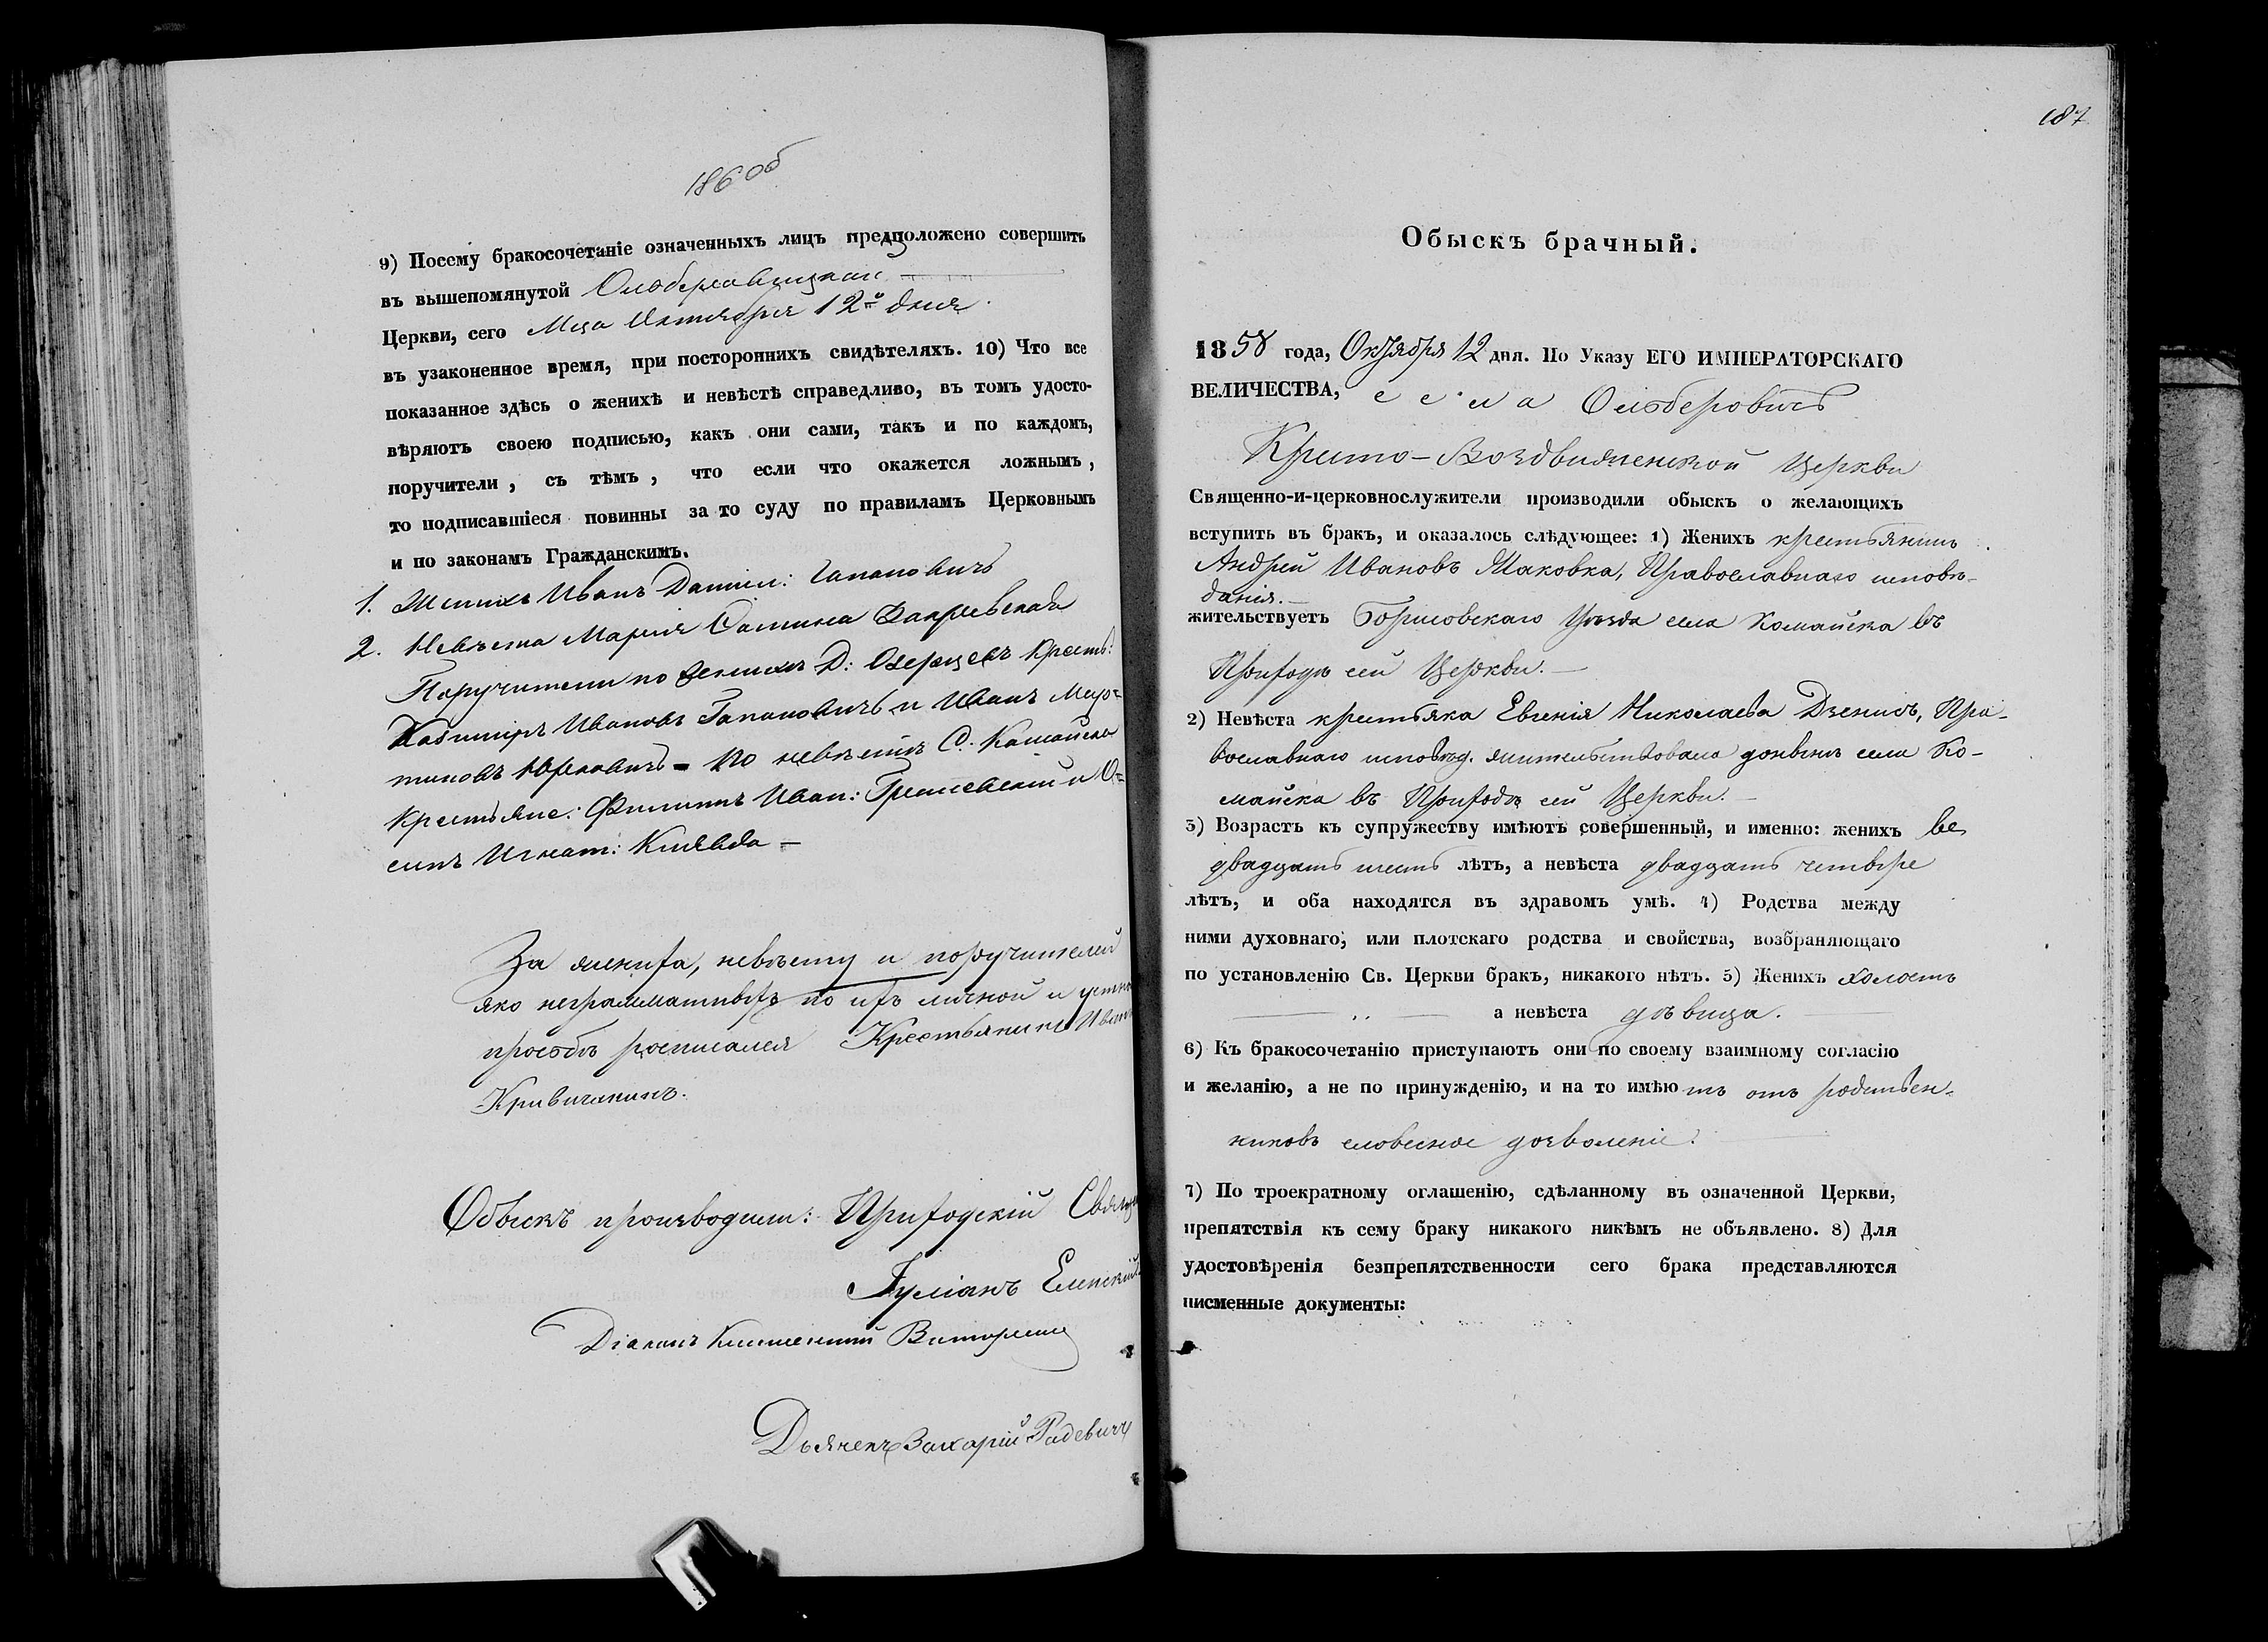 186 об
9) Посему бракосочетаніе означенныхъ лицъ предположено совершить
въ вышепомянутой
Церкви, сего Мца Октября 12го дня.
въ узаконенное время, при постороннихъ свидѣтеляхъ. 10) Что все
показанное здѣсь о женихѣ и невѣстѣ справедливо, въ томъ удосто-
вѣряютъ своею подписью, какъ они сами, такъ и по каждомъ,
поручители, съ тѣмъ, что если что окажется ложнымъ,
то подписавшіеся повинны за то суду по правиламъ Церковнымъ
и по законамъ Гражданскимъ.
1. Женихъ Иванъ Даніил: Гапановичъ
2. Невѣста Марія
Поручители по женихѣ Д: Озерцевъ Крест:
Казиміръ Ивановъ Гапановичъ и Иванъ Мар-
тиновъ Юрковичъ - по невѣстѣ С. Комайска
Крестьяне: Филиппъ Иван: и О=
сипъ Игнат:
За жениха, невѣсту и поручителей
яко неграмматныхъ по ихъ личной и устно
прозбѣ росписался Крестьянинъ Иванъ
Кривичанинъ.
Обыскъ производили: Приходскій Священ
Іуліанъ Еленскій
Діаконъ Климентій
Дьячекъ Захарій Радевичъ
187
Обыскъ брачный.
1858 года, Октября 12 дня. По Указу ЕГО ИМПЕРАТОРСКАГО
ВЕЛИЧЕСТВА, села Ольберовичъ
Кресто-Воздвиженской Церкви
Священно-и-церковнослужители производили обыскъ о желающихъ
вступить въ бракъ, и оказалось слѣдующее: 1) Женихъ крестьянинъ
Андрей Ивановъ Маковка, Православнаго исповѣ-
данія.
жительствуетъ Борисовскаго Уѣзда села Комайска въ
Приходѣ сей Церкви.
2) Невѣста крестьяка Евгенія Николаева Дзенисъ, Пра-
вославнаго исповѣд. жительствовала доныне села Ко-
майска въ Приходѣ сей Церкви.
3) Возрастъ къ супружеству имѣютъ совершенный, и именно: женихъ
двадцать шесть лѣтъ, а невѣста двадцать четыре
лѣтъ, и оба находятся въ здравомъ умѣ. 4) Родства между
ними духовнаго, или плотскаго родства и свойства, возбраняющаго
по установленію Св. Церкви бракъ, никакого нѣтъ. 5) Женихъ холостъ
а невѣста дѣвица.
6) Къ бракосочетанію приступаютъ они по своему взаимному согласію
и желанію, а не по принужденію, и на то имѣютъ отъ родствен-
никовъ словесное дозволеніе.
7) По троекратному оглашенію, сдѣланному въ означенной Церкви,
препятствія къ сему браку никакого никѣмъ не объявлено. 8) Для
удостовѣренія безпрепятственности сего брака представляются
писменные документы: